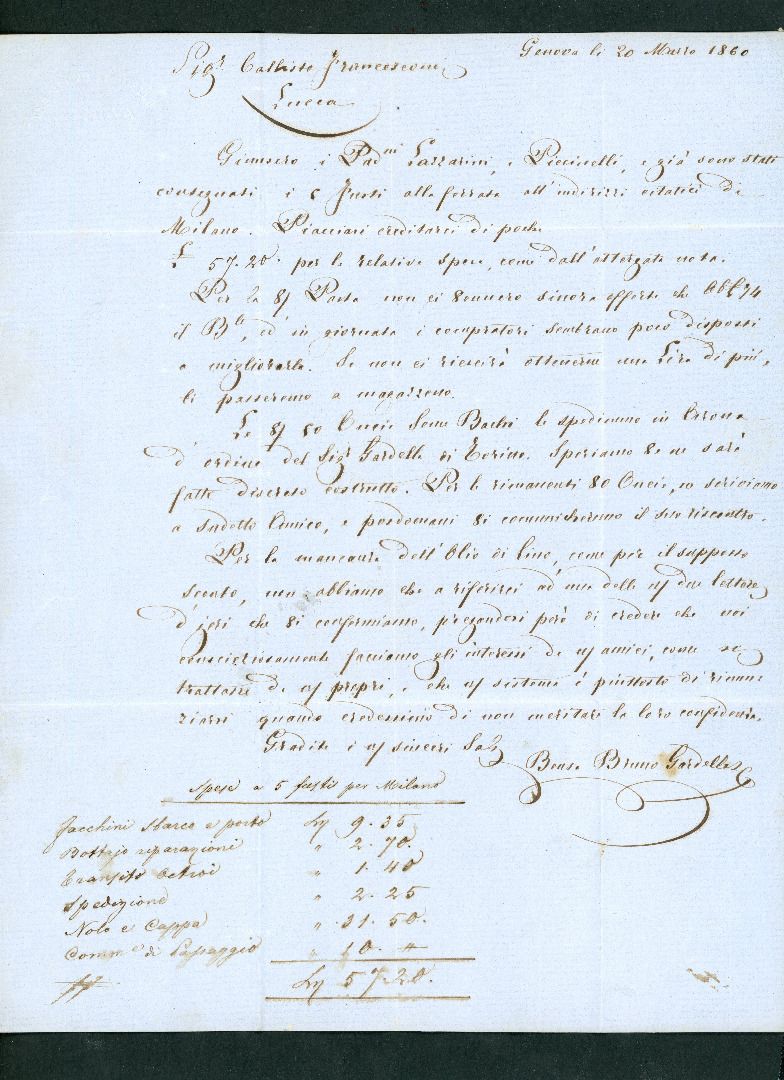 Genova li 20 Marzo 1860
Sigr Callisto Francesconi
Lucca
Giunsero i Padni Lazzarini, e Piccinelli, e già sono stati
consegnati i 5 fusti alla ferrata all'indirizzi di
Milano. Piacciavi creditarci di poche
£ 57.20. per le relative spese, come dall'attergata nota.
Per la Pasta non ci vennero sinora offerte che 74
il Ble, ed in giornata i compratori sembrano poco disposti
a migliorarle. Se non ci riescirà ottenerne una Lira di più,
li passeremo a magazzeno.
Le 50 Oncie Seme Bachi le spediremo in
d'ordine del Sigr Gardella di Torino. Speriamo ve ne sarà
fatto discreto costrutto. Per le rimanenti 80 Oncie, ne scriviamo
a sudetto Amico, e posdomani vi comunicheremo il suo riscontro.
Per la mancanza dell'Olio di lino, come per il supposto
sconto, non abbiamo che a riferirci ad una delle due lettere
d'jeri che vi confermiamo, pregandovi però di credere che noi
conscienziosamente facciamo gli interessi de amici, come se
trattasse de propri, che sistema è piuttosto di rinun
ziarvi quando credessimo di non meritare la loro confidenza.
Gradite i sinceri Sal
Bensa Bruno Gardella
Spese a 5 fusti per Milano
Facchini Sbarco e porto Ln 9.35
Bottajo riparazioni " 2.70.
Transito Octroi " 1.40
Spedizione " 2.25
Nolo e Cappa " 31.50.
Comme di Passaggio " 10. "
Ln 57.20.